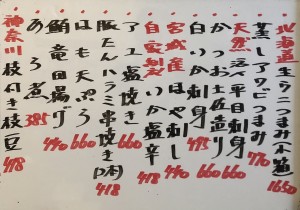 北海道 生ウニつまみ(木箱) 1650
蒸しアワビつまみ 770
天然 活〆平目刺身 660
かつお土佐造り 660
白いか刺身 495
宮城産 ほや刺し 440
自家製 いか塩辛 418
アユ塩焼き 440
豚たんハラミ串焼き 418
はも天ぷら 660
鮪竜田揚げ 440
あら煮 385
神奈川 枝付き枝豆 418